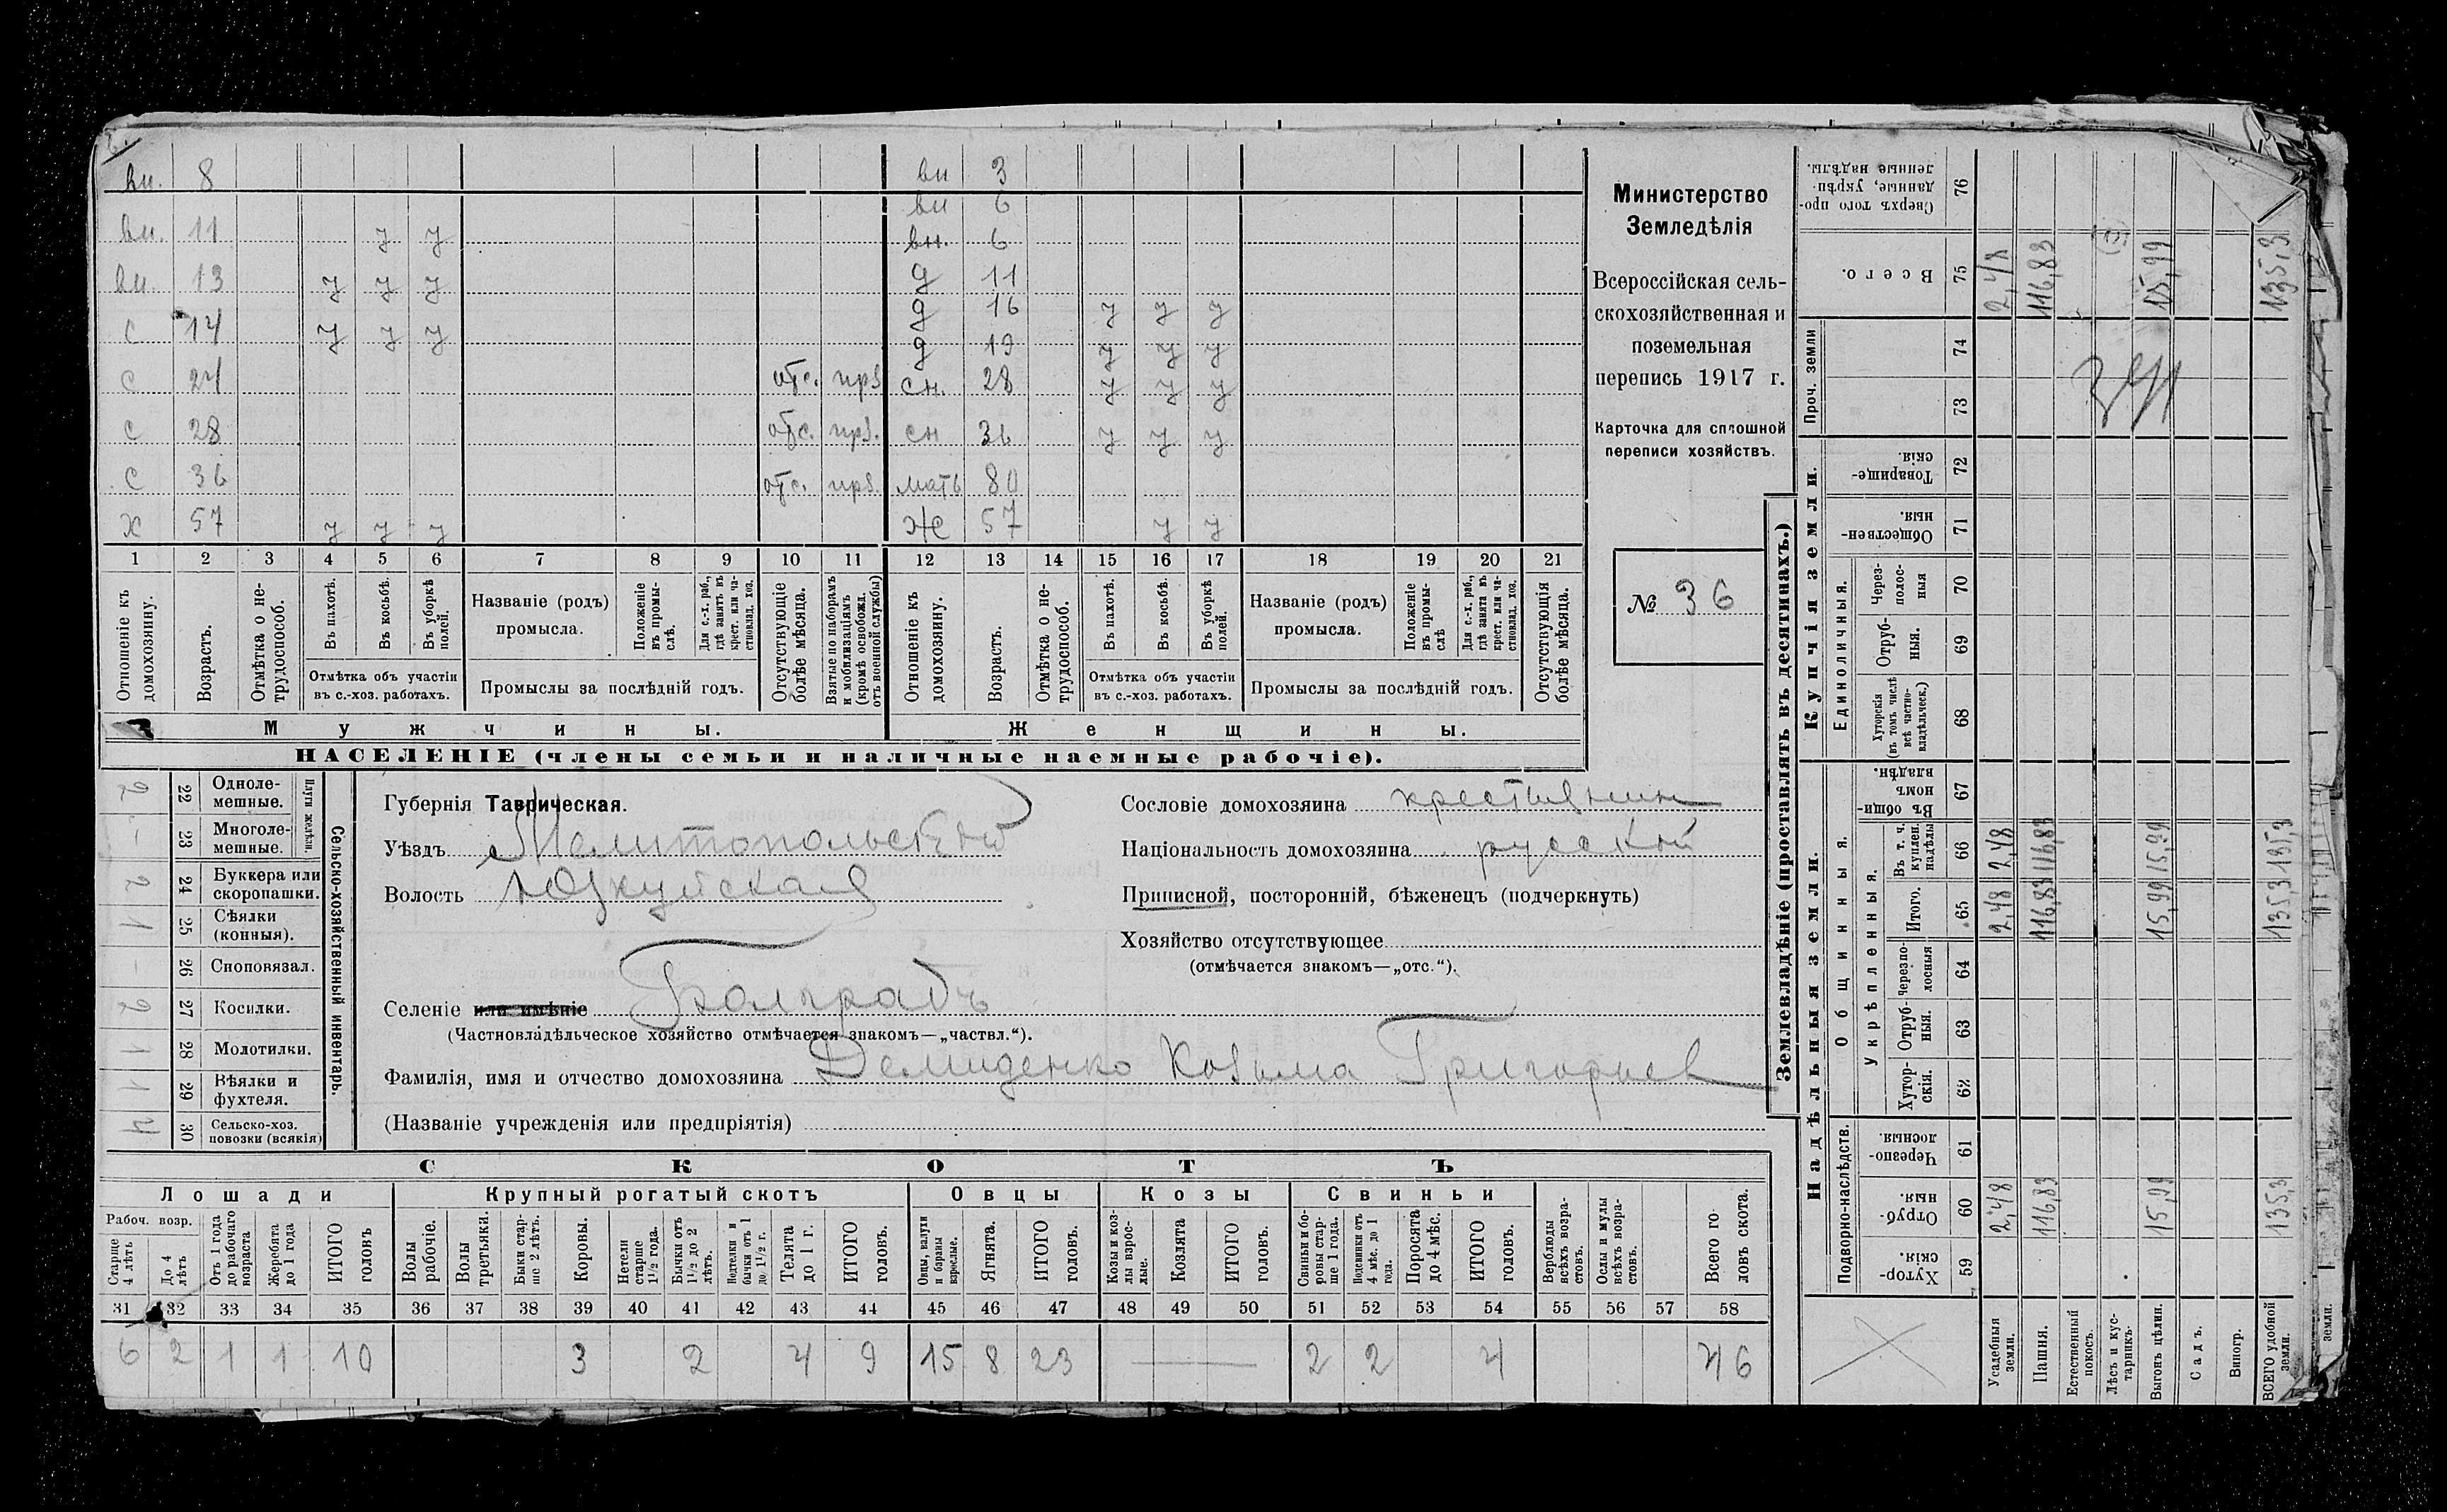 вн. 8 вн 3
вн 6
вн. 11 у у вн. 6
вн. 13 у у у д 11
с 14 у у у д 16 у у у
д 19 у у у
с 24 отс. прз сн. 28 у у у
с 28 отс. прз. сн 36 у у у
с 36 отс. прз. мать 80
х 57 у у у ж 57 у у
1 2 3 4 5 6 7 8 9 10 11 12 13 14 15 16 17 18 19 20 21
Отношеніе къ домохозяину.
Возрастъ.
Отмѣтка о не-трудоспособ.
Въ пахотѣ.
Въ косьбѣ.
Въ уборкѣ полей.
Отмѣтка объ участіи
въ с.-хоз. работахъ.
Названіе (родъ)
промысла.
Положеніе въ промы-слѣ.
Для с.-х. раб., гдѣ занятъ въ крест. или ча-стновлад. хоз.
Промыслы за послѣдній годъ.
Отсутствующіе болѣе мѣсяца.
Взятые по наборамъ и мобилизаціямъ (кромѣ освобожд. отъ военной службы)
Отношеніе къ домохозяину.
Возрастъ.
Отмѣтка о не-трудоспособ.
Въ пахотѣ.
Въ косьбѣ.
Въ уборкѣ полей.
Отмѣтка объ участіи
въ с.-хоз. работахъ.
Названіе (родъ)
промысла.
Положеніе въ промы-слѣ
Для с.-х. раб., гдѣ занята въ крест. или ча-стновлад. хоз.
Промыслы за послѣдній годъ.
Отсутствующія болѣе мѣсяца.
Мужчины. Женщины.
НАСЕЛЕНІЕ (члены семьи и наличные наемные рабочіе).
Министерство
Земледѣлія
Всероссійская сель-
скохозяйственная и
поземельная
перепись 1917 г.
Карточка для сплошной
переписи хозяйствъ.
№ 36
2 22 Одноле-мешные.
– 23 Многоле-мешные.
Плуги желѣзн.
2 24 Буккера или скоропашки.
1 25 Сѣялки (конныя).
– 26 Сноповязал.
2 27 Косилки.
1 28 Молотилки.
1 29 Вѣялки и фухтеля.
4 30 Сельско-хоз. повозки (всякія)
Сельско-хозяйственный инвентарь.
Губернія Таврическая.
Уѣздъ Мелитопольскій
Волость Юзкуйская
Селеніе или имѣніе Болградъ
(Частновладѣльческое хозяйство отмѣчается знакомъ—„частвл.“).
Фамилія, имя и отчество домохозяина Демиденко Козьма Григорьев
(Названіе учрежденія или предпріятія)
Сословіе домохозяина крестьянин
Національность домохозяина русскій
Приписной, посторонній, бѣженецъ (подчеркнуть)
Хозяйство отсутствующее
(отмѣчается знакомъ—„отс.“).
СКОТЪ
Лошади Крупный рогатый скотъ Овцы Козы Свиньи
Рабоч. возр.
Старше 4 лѣтъ
До 4 лѣтъ
Отъ 1 года до рабочаго возраста
Жеребята до 1 года
ИТОГО головъ
Волы рабочіе.
Волы третьяки.
Быки стар-ше 2 лѣтъ.
Коровы.
Нетели старше 1½ года.
Бычки отъ 1½ до 2 лѣтъ.
Подтелки и бычки отъ 1 до 1½ г.
Телята до 1 г.
ИТОГО головъ.
Овцы, валухи и бараны взрослые.
Ягнята.
ИТОГО головъ.
Козы и коз-лы взрос-лые.
Козлята
ИТОГО головъ.
Свиньи и бо-ровы стар-ше 1 года.
Подсвинки отъ 4 мѣс. до 1 года.
Поросята до 4 мѣс.
ИТОГО головъ.
Верблюды всѣхъ возра-стовъ.
Ослы и мулы всѣхъ возра-стовъ.
Всего го-ловъ скота.
31 32 33 34 35 36 37 38 39 40 41 42 43 44 45 46 47 48 49 50 51 52 53 54 55 56 57 58
6 2 1 1 10 3 2 4 9 15 8 23 — 2 2 4 46
Землевладѣніе (проставлять въ десятинахъ.)
Надѣльныя земли. Купчія земли. Проч. земли
Подворно-наслѣдств. Общинныя. Укрѣпленныя. Единоличныя.
Хутор-скія. 59
Отруб-ныя. 60
Черезпо-лосныя. 61
Хутор-скія. 62
Отруб-ныя. 63
Черезпо-лосныя 64
Итого. 65
Въ т. ч. куплен. надѣлы 66
Въ общи-номъ владѣн. 67
Хуторскія (въ томъ числѣ всѣ частно-владѣльческ.) 68
Отруб-ныя. 69
Через-полос-ныя 70
Обществен-ныя. 71
Товарище-скія. 72
73
74
Всего. 75
Сверхъ того про-данные, укрѣп-ленные надѣлы. 76
Усадебныя земли. 2,48 2,48 2,48 2,48
Пашня. 116,83 116,83 116,83 116,83
Естественный покосъ.
Лѣсъ и кус-тарникъ.
Выгонъ цѣлин. 15,99 15,99 15,99 15,99
Садъ.
Виногр.
ВСЕГО удобной земли. 135,3 135,3 135,3 135,3
земли.